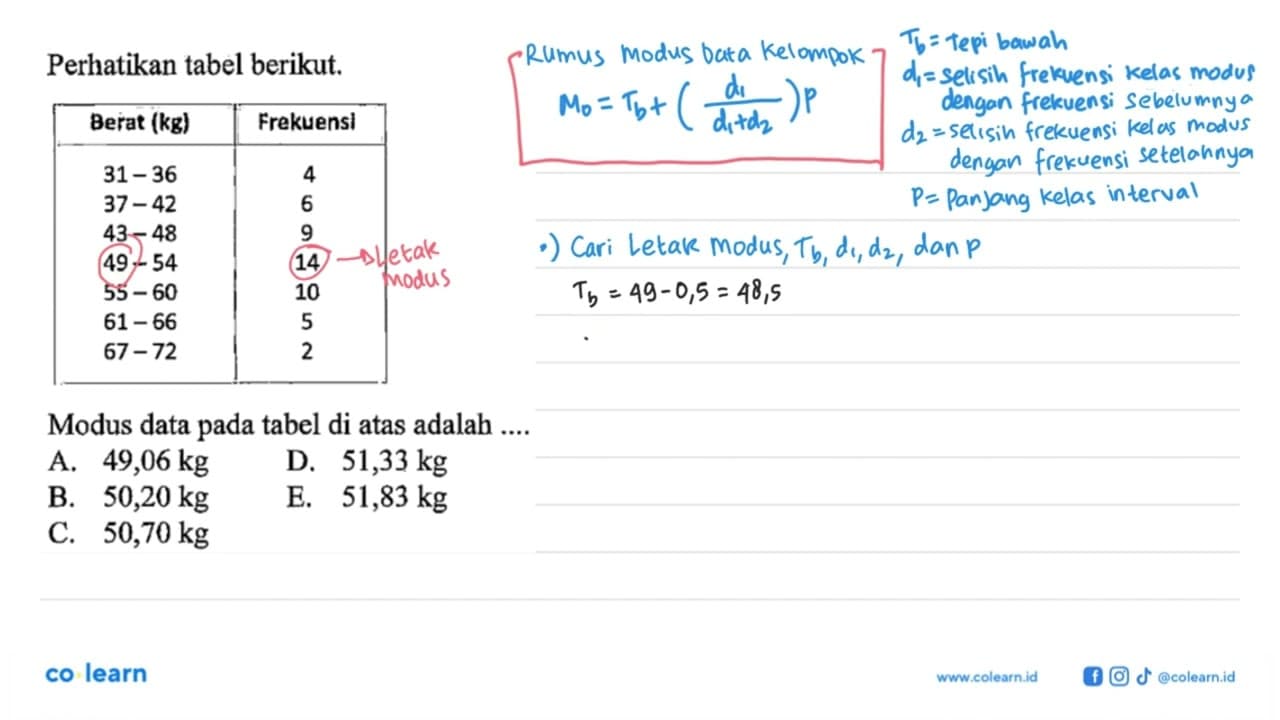 Perhatikan tabel berikut.
Berat (kg) Frekuensi
31 – 36 4
37 – 42 6
43 – 48 9
49 – 54 14 → Letak modus
55 – 60 10
61 – 66 5
67 – 72 2
Modus data pada tabel di atas adalah ....
A. 49,06 kg D. 51,33 kg
B. 50,20 kg E. 51,83 kg
C. 50,70 kg
Rumus Modus Data Kelompok
Mo = Tb + (d1/(d1+d2)) p
Tb = Tepi bawah
d1 = selisih frekuensi kelas modus
dengan frekuensi sebelumnya
d2 = selisih frekuensi kelas modus
dengan frekuensi setelahnya
P = Panjang kelas interval
•) Cari Letak Modus, Tb, d1, d2, dan p
Tb = 49 - 0,5 = 48,5
co learn
www.colearn.id @colearn.id